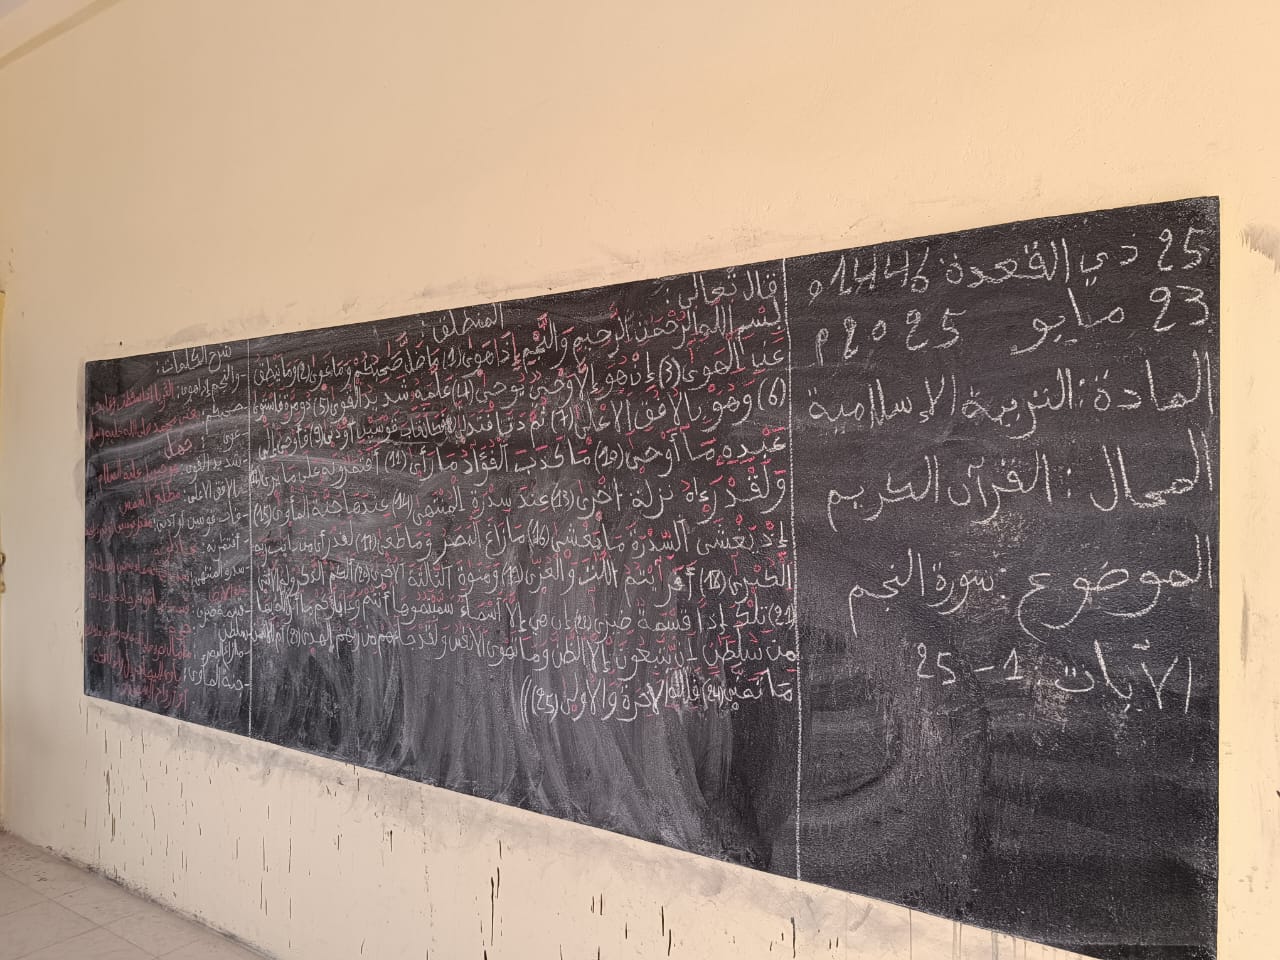 25 ذي القعدة 1446 ه
23 مايو 2025 م
المادة: التربية الإسلامية
المجال: القرآن الكريم
الموضوع: سورة النجم
الآيات 1 - 25
المنطلق:
قال تعالى:
بسم الله الرحمن الرحيم والنجم إذا هوى (1) ما ضل صاحبكم وما غوى (2) وما ينطق
عن الهوى (3) إن هو إلا وحي يوحى (4) علمه شديد القوى (5) ذو مرة فاستوى
(6) وهو بالأفق الأعلى (7) ثم دنا فتدلى (8) فكان قاب قوسين أو أدنى (9) فأوحى إلى
عبده ما أوحى (10) ما كذب الفؤاد ما رأى (11) أفتمرونه على ما يرى (12)
ولقد رءاه نزلة أخرى (13) عند سدرة المنتهى (14) عندها جنة المأوى (15)
إذ يغشى السدرة ما يغشى (16) ما زاغ البصر وما طغى (17) لقد رأى من آيت ربه
الكبرى (18) أفرأيتم اللت والعزى (19) ومنوة الثالثة الأخرى (20) ألكم الذكر وله الأنثى
(21) تلك إذا قسمة ضيزى (22) إن هي إلا أسماء سميتموها أنتم وءاباؤكم ما أنزل الله بها
من سلطن إن يتبعون إلا الظن وما تهوى الأنفس ولقد جاءهم من ربهم الهدى (23) أم للإنسن
ما تمنى (24) فلله الآخرة والأولى (25)))
شرح الكلمات:
- والنجم إذا هوى:
صاحبكم:
غوى: جهل
- شديد القوى: هو جبريل عليه السلام
- الأفق الأعلى: مطلع الشمس
- قاب قوسين أو أدنى:
- أفتمرونه:
- سدرة المنتهى:
- قسمة ضيزى:
- سلطن:
- ما زاغ البصر:
- جنة المأوى: